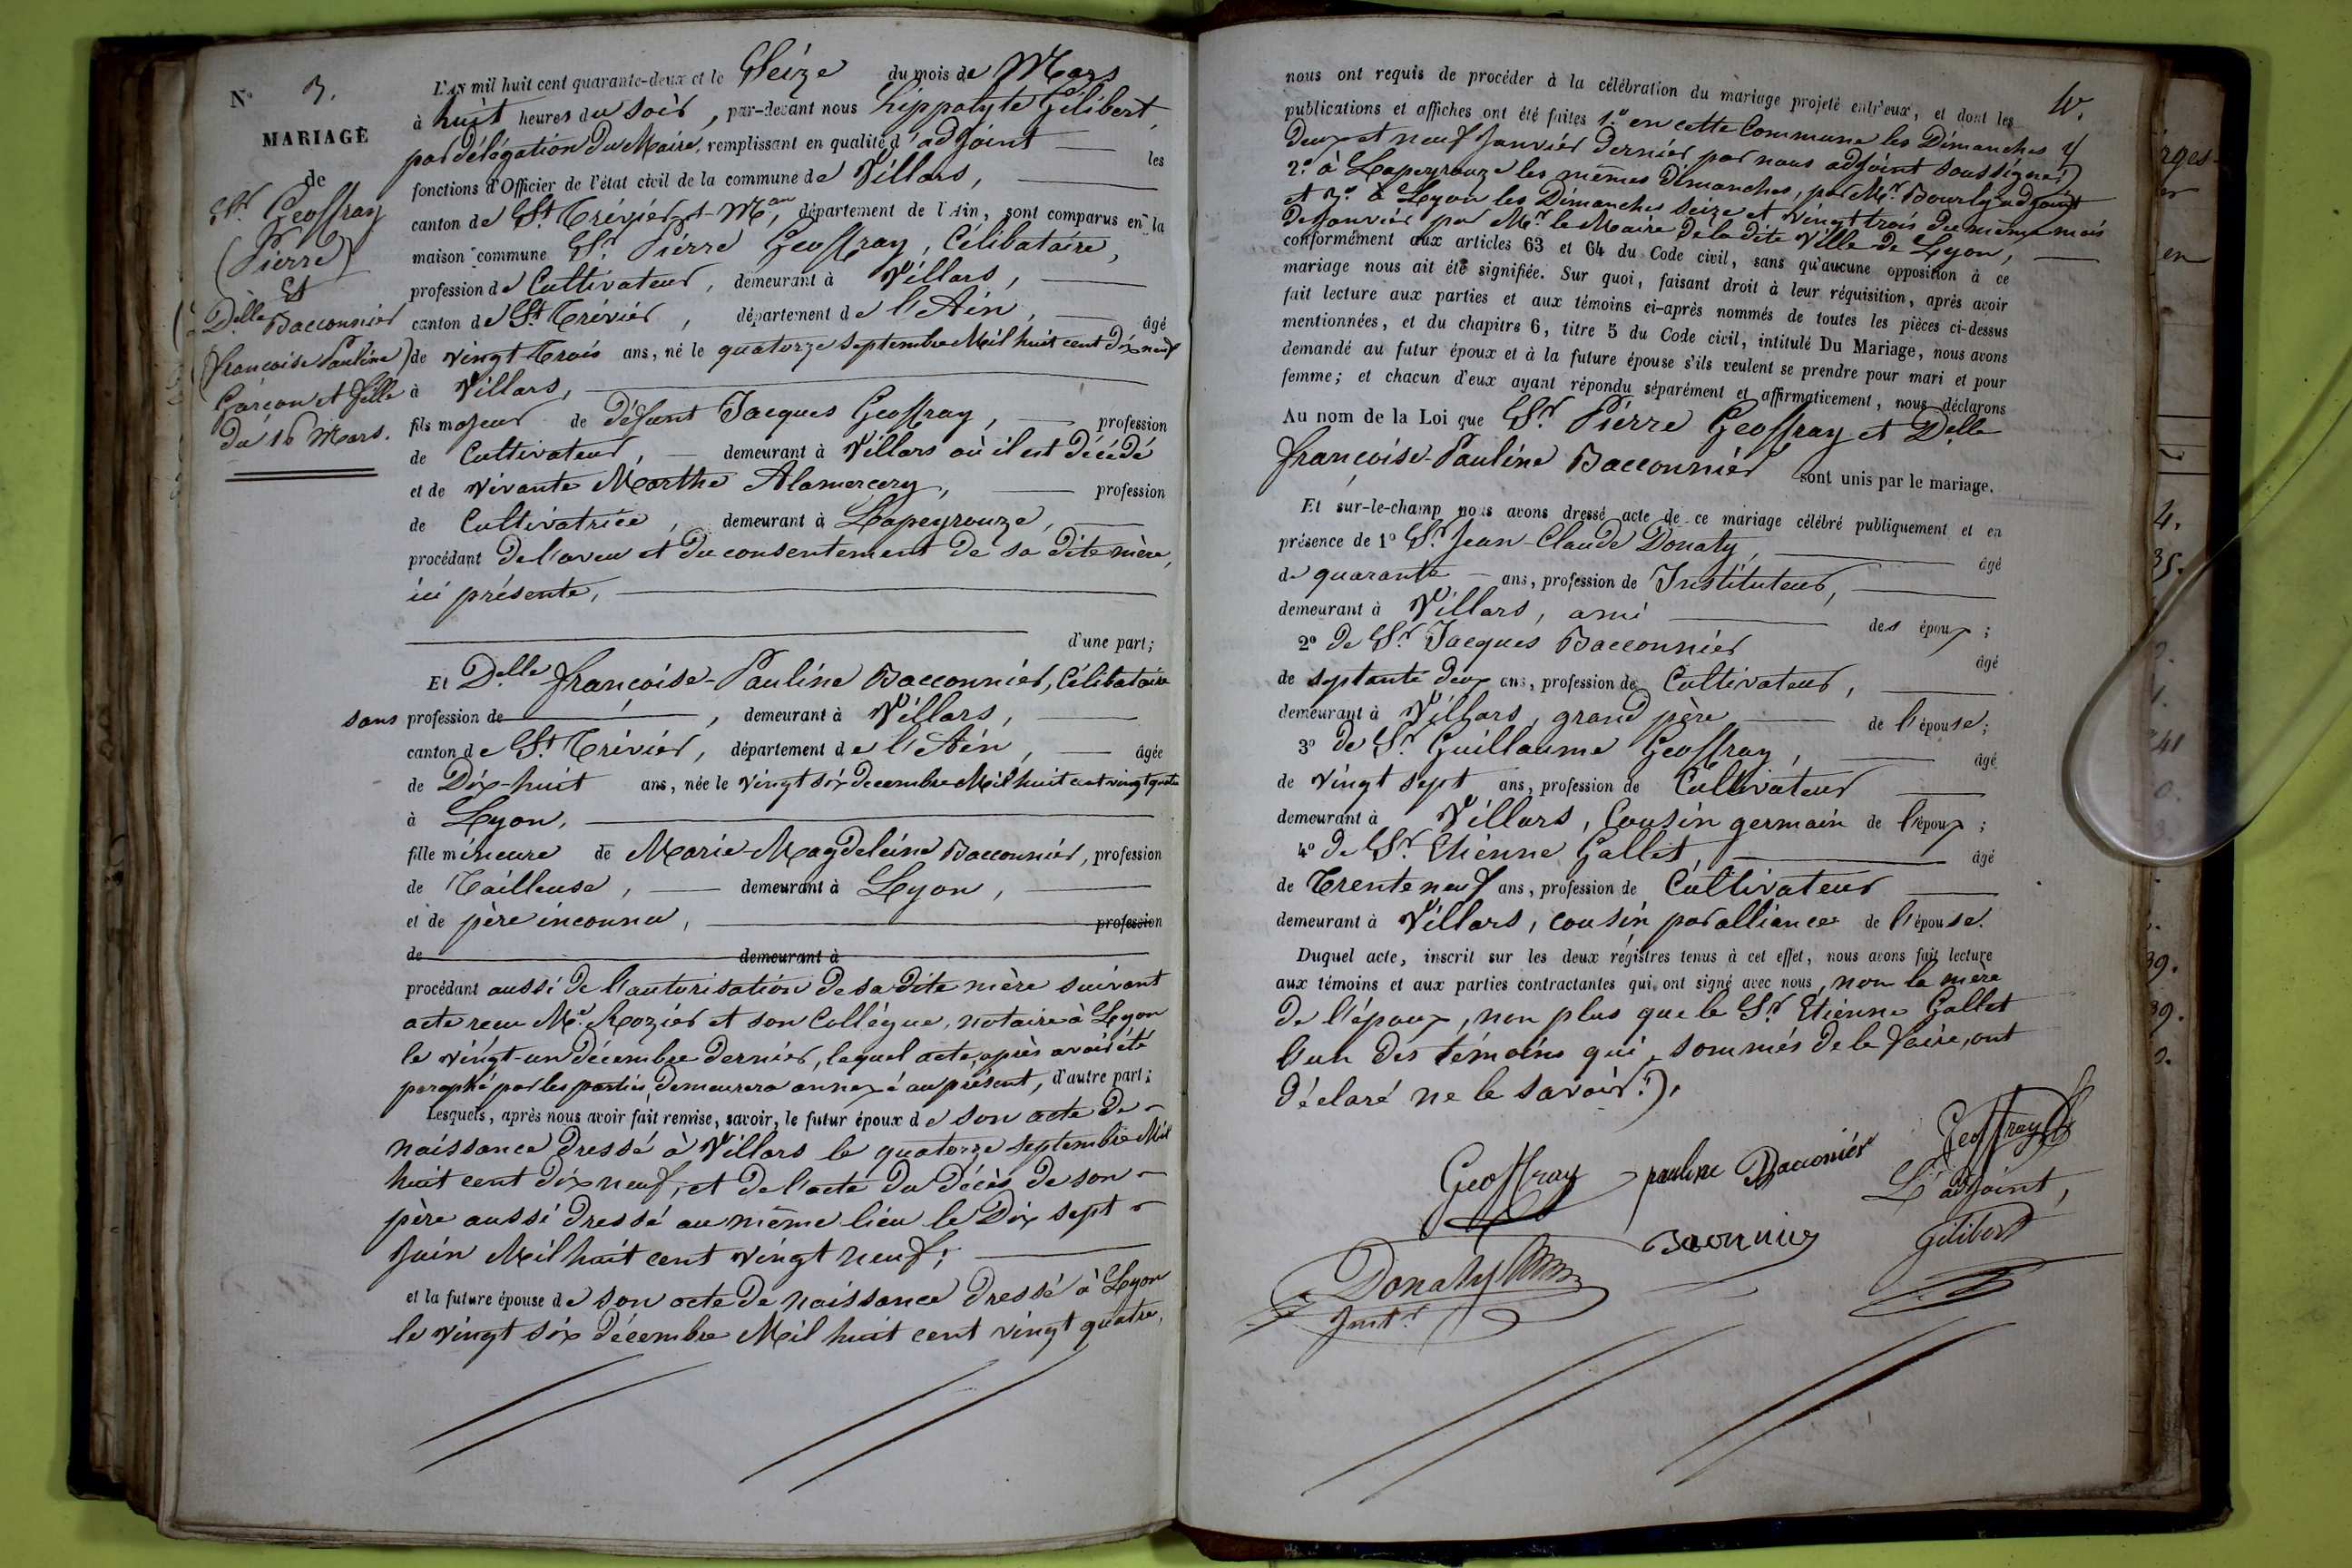 N.º 3.
MARIAGE
de
Sr. Geoffray
(Pierre)
Et
Delle Bacconnier
(françoise Pauline)
Garçon et fille
du 16 Mars.
L'AN mil huit cent quarante-deux et le Seize du mois de Mars
à huit heures du soir, par-devant nous hippolyte Gilibert,
par délégation du Maire, remplissant en qualité d'adjoint les
fonctions d'Officier de l'état civil de la commune de Villars,
canton de St. Trévier, département de l'Ain, sont comparus en la
maison commune Sr. Pierre Geoffray, Célibataire,
profession de Cultivateur, demeurant à Villars,
canton de St. Trévier, département de l'Ain, âgé
de vingt trois ans, né le quatorze septembre Mil huit cent dix neuf
à Villars,
fils majeur de défunt Jacques Geoffray, profession
de Cultivateur, demeurant à Villars où il est décédé
et de vivante Marthe Alamercery, profession
de Cultivatrice, demeurant à Lapeyrouze,
procédant de l'aveu et du consentement de sa dite mère,
ici présente,
d'une part;
Et Delle françoise-Pauline Bacconnier, Célibataire
sans profession de , demeurant à Villars,
canton de St. Trévier, département de l'Ain, âgée
de Dix-huit ans, née le vingt six decembre Mil huit cent vingt quatre
à Lyon,
fille mineure de Marie Magdeleine Bacconnier, profession
de Tailleuse, demeurant à Lyon,
et de père inconnu, profession
de demeurant à
procédant aussi de l'autorisation de sa dite mère suivant
acte reçu Me. Rozier et son Collégue, notaire à Lyon
le vingt-un décembre dernier, lequel acte, après avoir été
paraphé par les parties, demeurera annexé au présent, d'autre part;
Lesquels, après nous avoir fait remise, savoir, le futur époux de son acte de
naissance dressé à Villars le quatorze septembre Mil
huit cent dix neuf, et de l'acte du décès de son
père aussi dressé au même lieu le Dix sept
juin Mil huit cent vingt neuf;
et la future épouse de son acte de naissance dressé à Lyon
le vingt six décembre Mil huit cent vingt quatre,
nous ont requis de procéder à la célébration du mariage projeté entr'eux, et dont les
publications et affiches ont été faites 1.º en cette Commune les Dimanches
deux et neuf Janvier dernier par nous adjoint soussigné;
2.º à Lapeyrouze les mêmes dimanches, par Mr. Bourly adjoint
et 3.º à Lyon les Dimanches seize et vingt trois du même mois
de janvier par Mr. le Maire de la dite Ville de Lyon,
conformément aux articles 63 et 64 du Code civil, sans qu'aucune opposition à ce
mariage nous ait été signifiée. Sur quoi, faisant droit à leur réquisition, après avoir
fait lecture aux parties et aux témoins ci-après nommés de toutes les pièces ci-dessus
mentionnées, et du chapitre 6, titre 5 du Code civil, intitulé Du Mariage, nous avons
demandé au futur époux et à la future épouse s'ils veulent se prendre pour mari et pour
femme; et chacun d'eux ayant répondu séparément et affirmativement, nous déclarons
Au nom de la Loi que Sr. Pierre Geoffray et Delle
françoise-Pauline Bacconnier sont unis par le mariage.
Et sur-le-champ nous avons dressé acte de ce mariage célébré publiquement et en
présence de 1º Sr. Jean-Claude Donaty, âgé
de quarante ans, profession de Instituteur,
demeurant à Villars, ami des époux;
2º de Sr. Jacques Bacconnier âgé
de septante deux ans, profession de Cultivateur,
demeurant à Villars, grand père de l'épouse;
3º de Sr. Guillaume Geoffray, âgé
de vingt sept ans, profession de Cultivateur
demeurant à Villars, Cousin germain de l'époux;
4º de Sr. Etienne Gallet, âgé
de Trente neuf ans, profession de Cultivateur
demeurant à Villars, cousin par alliance de l'épouse.
Duquel acte, inscrit sur les deux régistres tenus à cet effet, nous avons fait lecture
aux témoins et aux parties contractantes qui ont signé avec nous, non la mère
de l'époux, non plus que le Sr. Etienne Gallet
l'un des témoins qui, sommés de le faire, ont
déclaré ne le savoir.
Geoffray pauline Bacconiér Geoffray
L'adjoint,
Gilibert
Donaty
Instr.